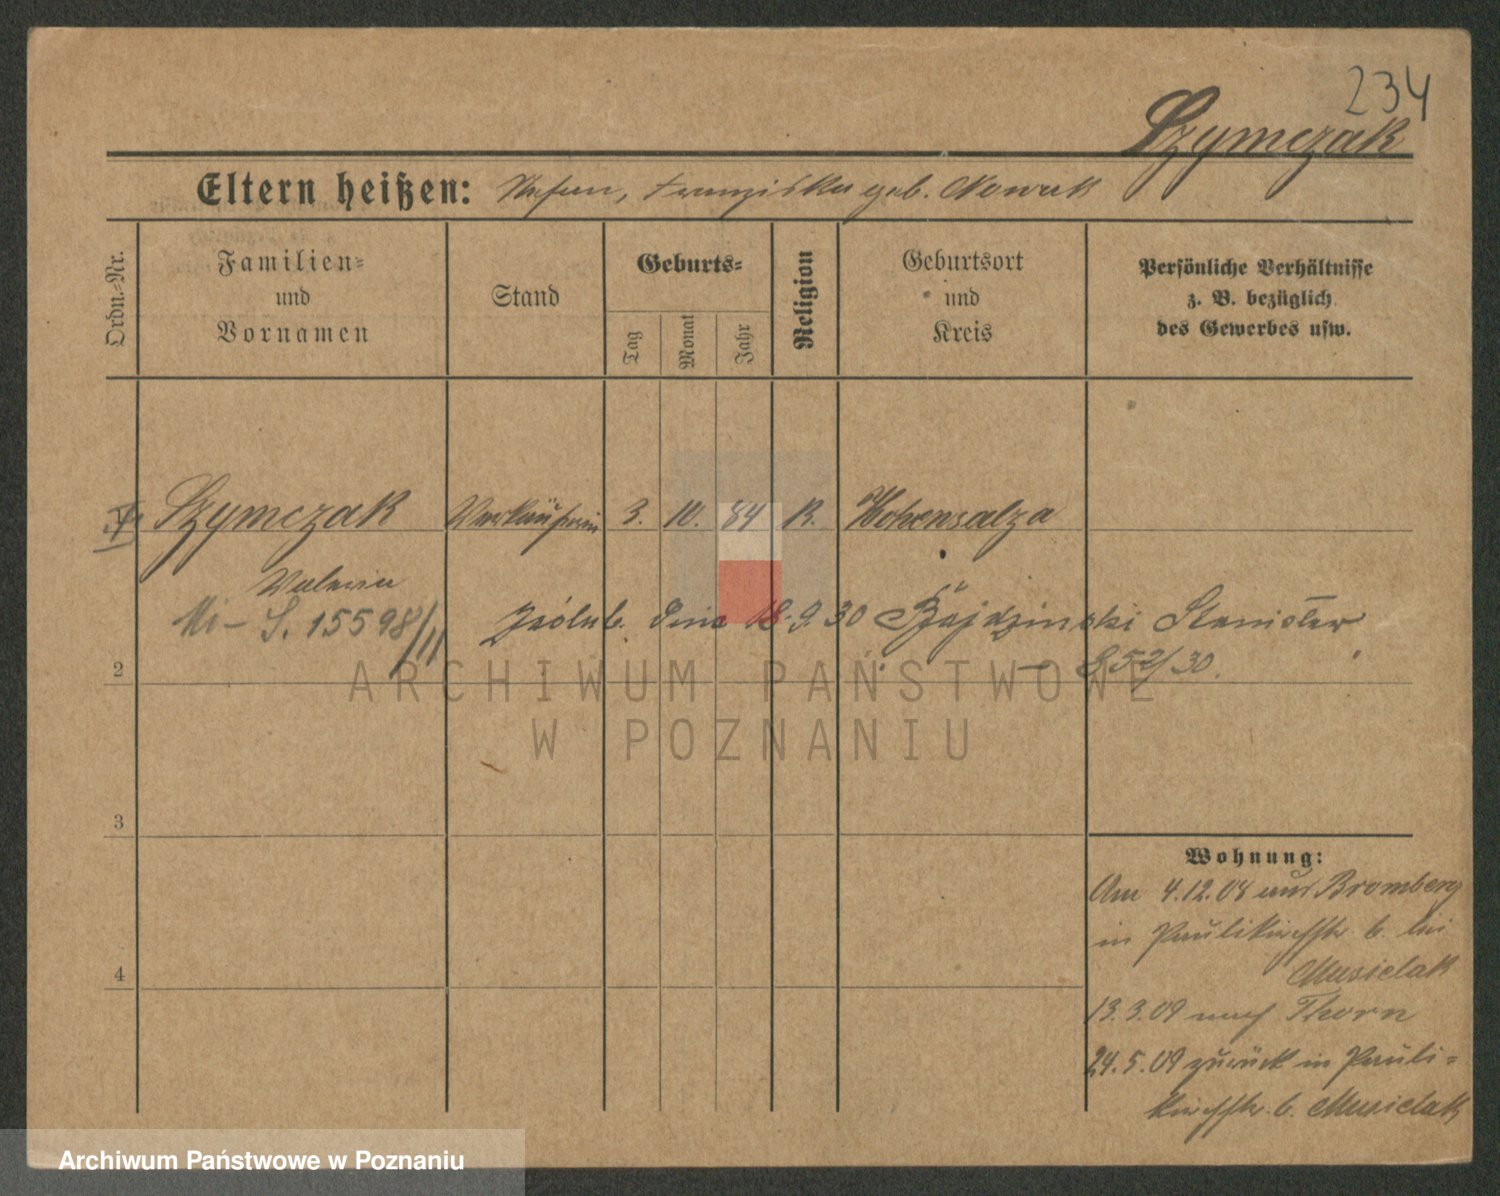 234
Szymczak
Eltern heißen: Stefan, Franziska geb. Nowak
Ordn.-Nr.
Familien-
und
Vornamen
Stand
Geburts-
Tag
Monat
Jahr
Religion
Geburtsort
und
Kreis
Persönliche Verhältnisse
z. B. bezüglich
des Gewerbes usw.
Szymczak Verkäuferin 3. 10. 84 K. Hohensalza
Valeria
S. 15598/II
dnia 18.9.30 Stanisław
2
52/30.
ARCHIWUM PAŃSTWOWE
W POZNANIU
3
Wohnung:
Am 4.12.08 aus Bromberg
in Paulikirchstr. 6. bei
Musielak
13.3.09 nach Thorn
4
24.5.09 zurück in Pauli-
kirchstr. 6. Musielak
Archiwum Państwowe w Poznaniu